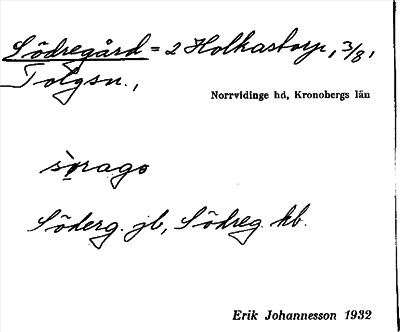 Södregård = 2 Holkastorp, 3/8,
Tolgsn.,
Norrvidinge hd, Kronobergs län
sørago
Söderg. jb, Södreg. kb.
Erik Johannesson 1932